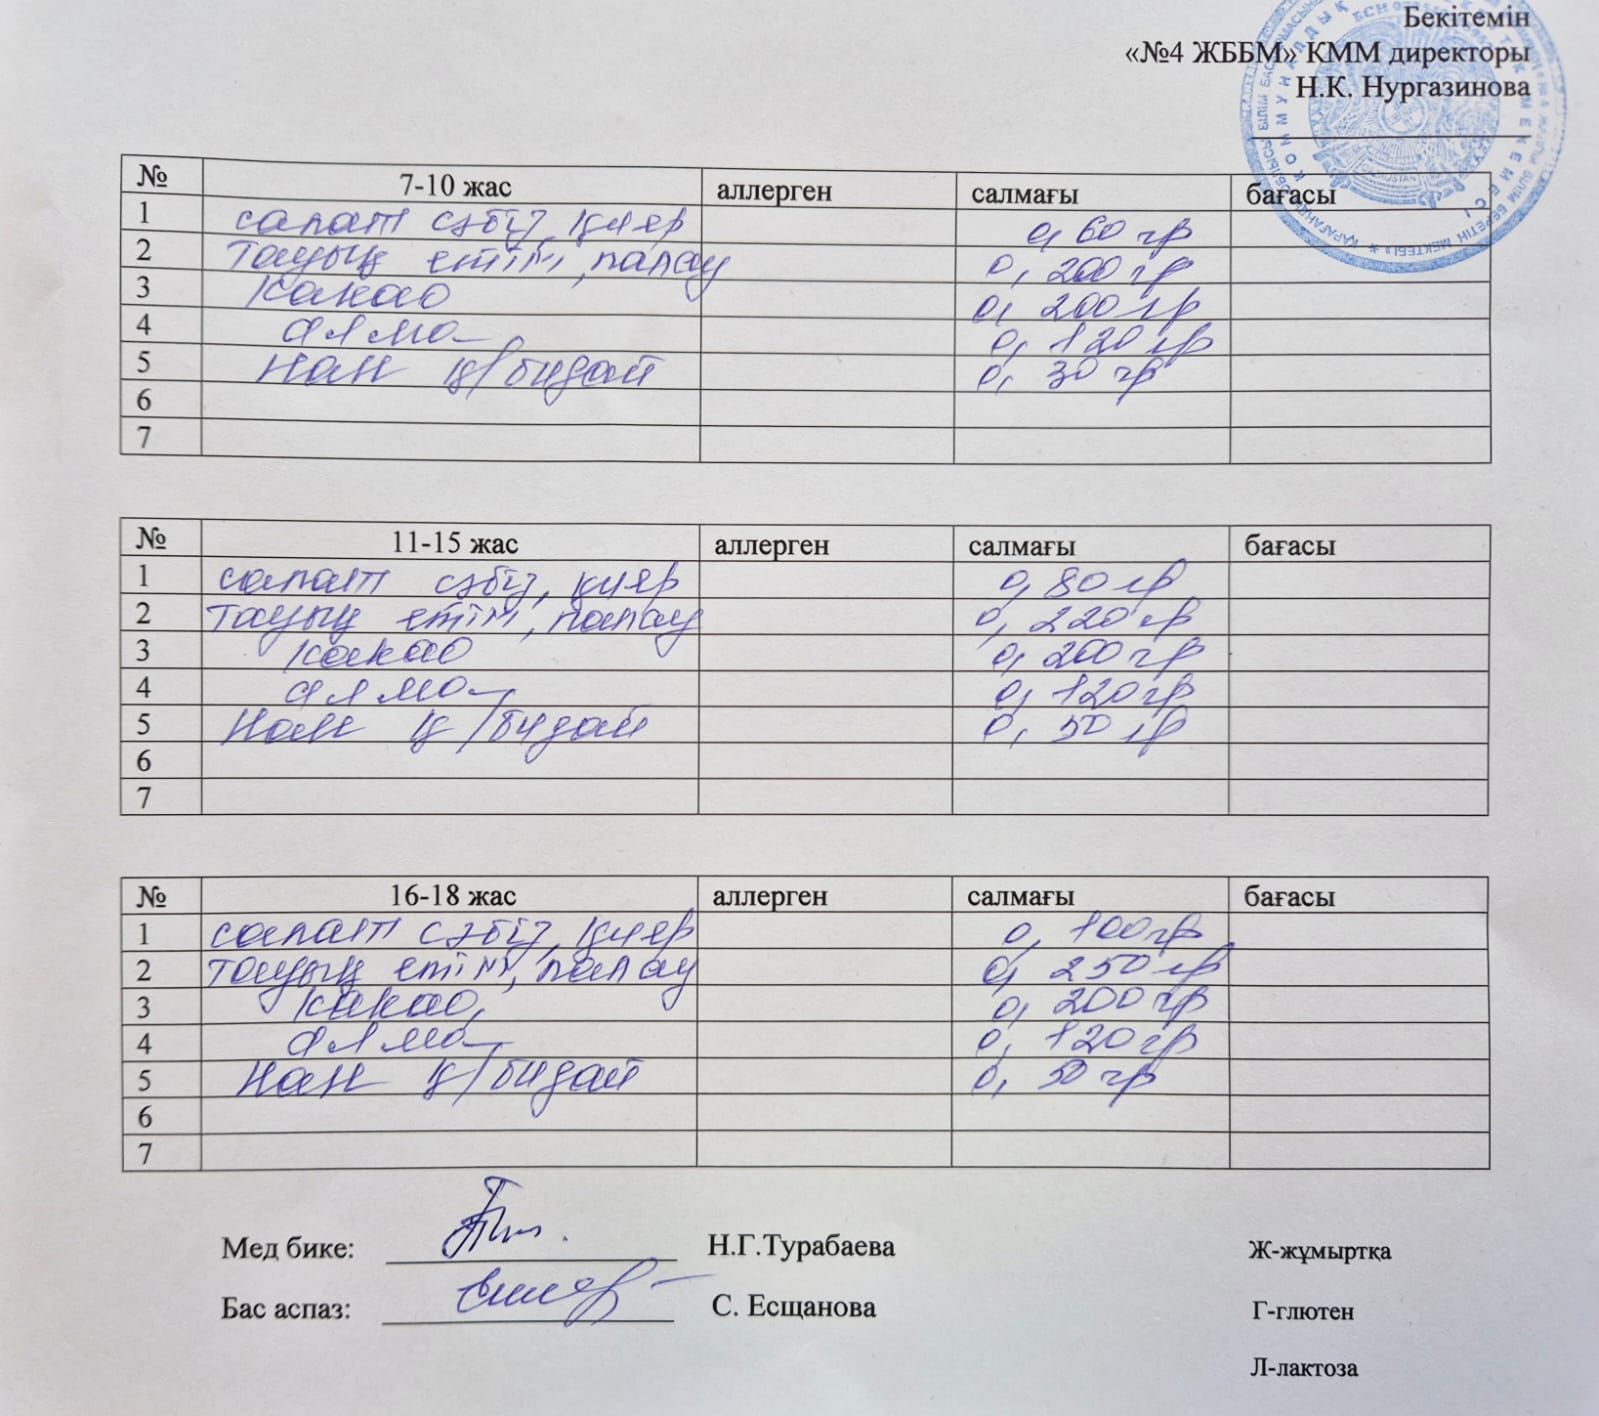 Бекітемін
«№4 ЖББМ» КММ директоры
Н.К. Нургазинова
№ 7-10 жас аллерген салмағы бағасы
1 салат сәбіз, қияр 0, 60 гр
2 тауық етімі, палау 0, 200 гр
3 какао 0, 200 гр
4 алма 0, 120 гр
5 нан қ/бидай 0, 30 гр
6
7
№ 11-15 жас аллерген салмағы бағасы
1 салат сәбіз, қияр 0, 80 гр
2 тауық етімі, палау 0, 220 гр
3 какао 0, 200 гр
4 алма 0, 120 гр
5 нан қ/бидай 0, 50 гр
6
7
№ 16-18 жас аллерген салмағы бағасы
1 салат сәбіз, қияр 0, 100 гр
2 тауық етімі, палау 0, 250 гр
3 какао, 0, 200 гр
4 алма 0, 120 гр
5 нан қ/бидай 0, 50 гр
6
7
Мед бике: Н.Г.Турабаева Ж-жұмыртқа
Бас аспаз: С. Есщанова Г-глютен
Л-лактоза